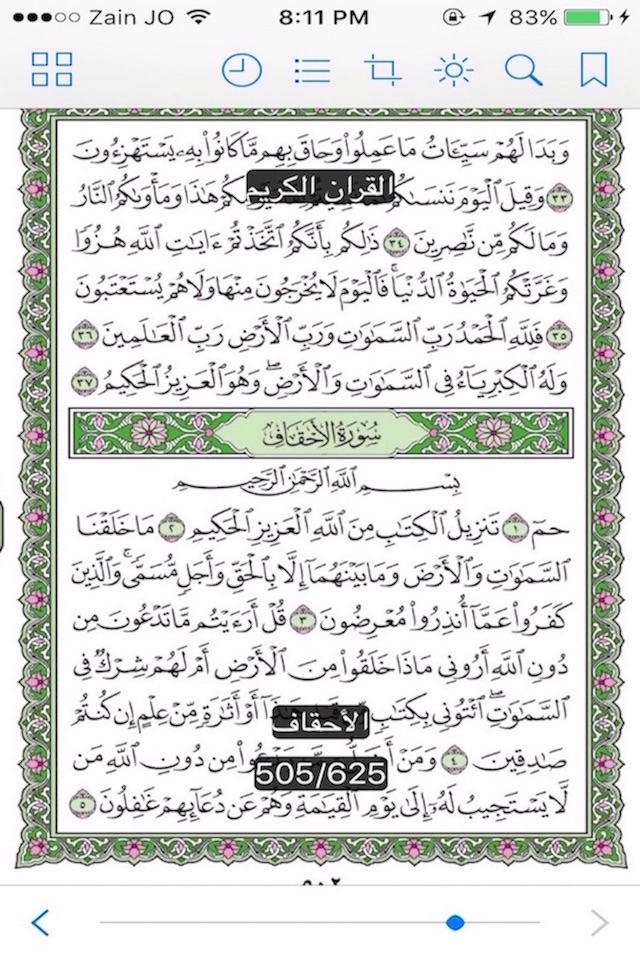 Zain JO 8:11 PM 83%
وَبَدَا لَهُمْ سَيِّـَٔاتُ مَا عَمِلُوا۟ وَحَاقَ بِهِم مَّا كَانُوا۟ بِهِۦ يَسْتَهْزِءُونَ
٣٣ وَقِيلَ ٱلْيَوْمَ نَنسَىٰكُمْ هَٰذَا وَمَأْوَىٰكُمُ ٱلنَّارُ
القرآن الكريم
وَمَا لَكُم مِّن نَّٰصِرِينَ ٣٤ ذَٰلِكُم بِأَنَّكُمُ ٱتَّخَذْتُمْ ءَايَٰتِ ٱللَّهِ هُزُوًا
وَغَرَّتْكُمُ ٱلْحَيَوٰةُ ٱلدُّنْيَا ۚ فَٱلْيَوْمَ لَا يُخْرَجُونَ مِنْهَا وَلَا هُمْ يُسْتَعْتَبُونَ
٣٥ فَلِلَّهِ ٱلْحَمْدُ رَبِّ ٱلسَّمَٰوَٰتِ وَرَبِّ ٱلْأَرْضِ رَبِّ ٱلْعَٰلَمِينَ ٣٦
وَلَهُ ٱلْكِبْرِيَآءُ فِى ٱلسَّمَٰوَٰتِ وَٱلْأَرْضِ ۖ وَهُوَ ٱلْعَزِيزُ ٱلْحَكِيمُ ٣٧
سُورَةُ الأَحْقَافِ
بِسْمِ ٱللَّهِ ٱلرَّحْمَٰنِ ٱلرَّحِيمِ
حمٓ ١ تَنزِيلُ ٱلْكِتَٰبِ مِنَ ٱللَّهِ ٱلْعَزِيزِ ٱلْحَكِيمِ ٢ مَا خَلَقْنَا
ٱلسَّمَٰوَٰتِ وَٱلْأَرْضَ وَمَا بَيْنَهُمَآ إِلَّا بِٱلْحَقِّ وَأَجَلٍ مُّسَمًّى ۚ وَٱلَّذِينَ
كَفَرُوا۟ عَمَّآ أُنذِرُوا۟ مُعْرِضُونَ ٣ قُلْ أَرَءَيْتُم مَّا تَدْعُونَ مِن
دُونِ ٱللَّهِ أَرُونِى مَاذَا خَلَقُوا۟ مِنَ ٱلْأَرْضِ أَمْ لَهُمْ شِرْكٌ فِى
ٱلسَّمَٰوَٰتِ ۖ ٱئْتُونِى بِكِتَٰبٍ أَوْ أَثَٰرَةٍ مِّنْ عِلْمٍ إِن كُنتُمْ
الأحقاف
صَٰدِقِينَ ٤ وَمَنْ مِن دُونِ ٱللَّهِ مَن
505/625
لَّا يَسْتَجِيبُ لَهُۥٓ إِلَىٰ يَوْمِ ٱلْقِيَٰمَةِ وَهُمْ عَن دُعَآئِهِمْ غَٰفِلُونَ ٥